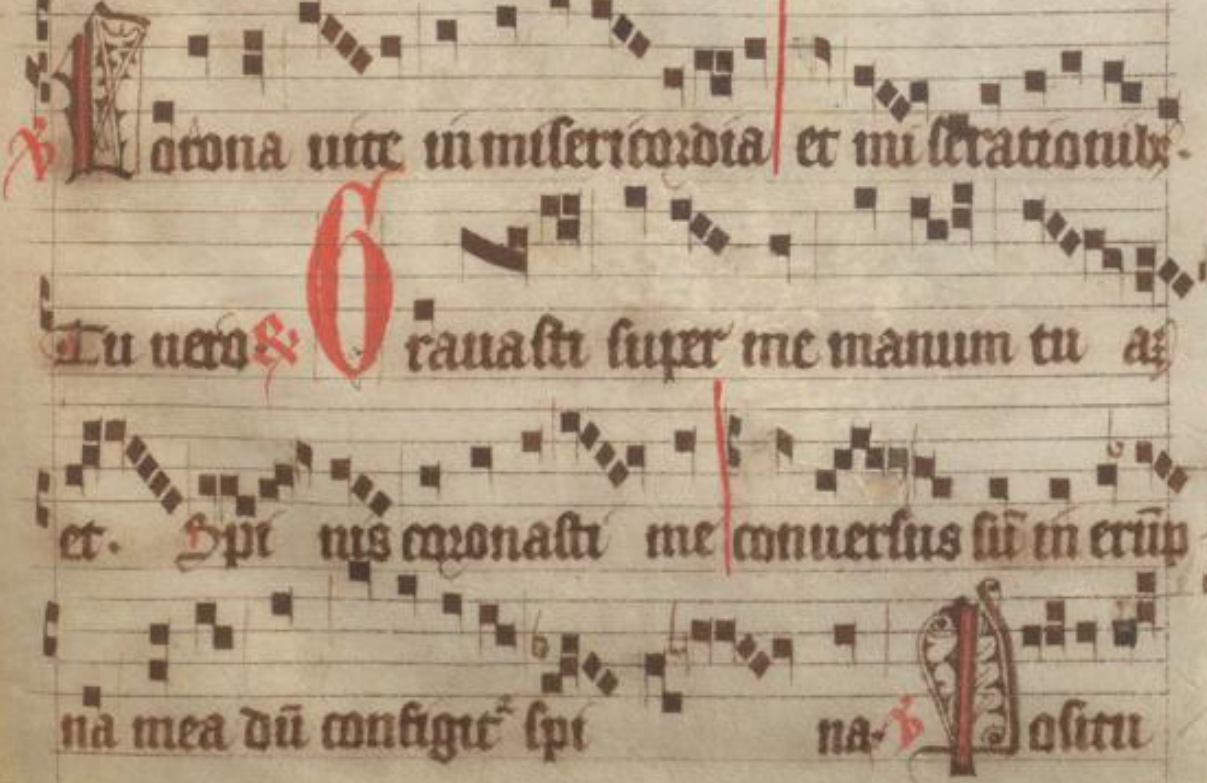 ℣ Corona uite in misericordia et mi serationibꝫ.
Tu uero. & Grauasti super me manum tu aꝫ
et. Spi nis coronasti me conuersus sū in erūp
na mea dū configitᷣ spi na. ℣ Positu